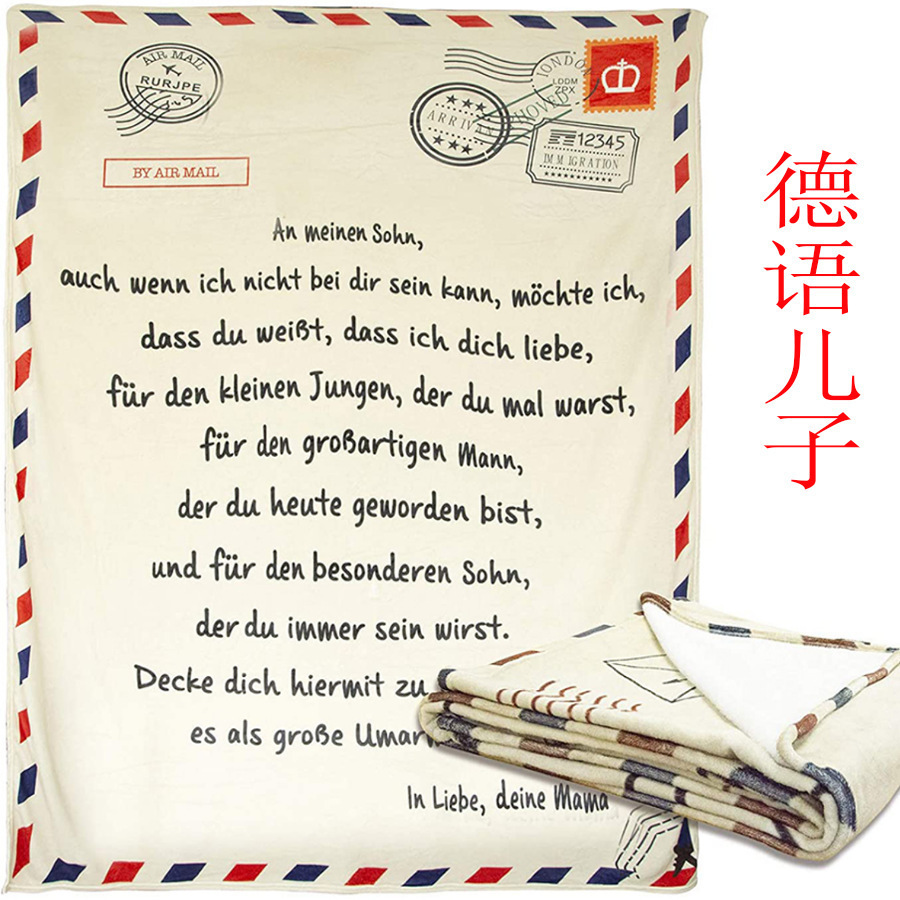 AIR MAIL
RURJPE
LONDON
LDDM
ZPX
12345
IMMIGRATION
BY AIR MAIL
An meinen Sohn,
auch wenn ich nicht bei dir sein kann, möchte ich,
dass du weißt, dass ich dich liebe,
für den kleinen Jungen, der du mal warst,
für den großartigen Mann,
der du heute geworden bist,
und für den besonderen Sohn,
der du immer sein wirst.
Decke dich hiermit zu
es als große
In Liebe, deine Mama
德语儿子